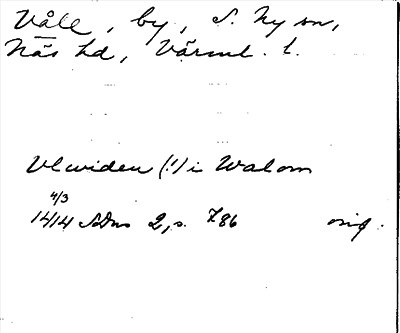 Våll, by, S. Ny sn,
Näs hd, Värml. l.
Ulwiden (!) i Walom
4/3
1414 SDns 2, s. 786 orig.